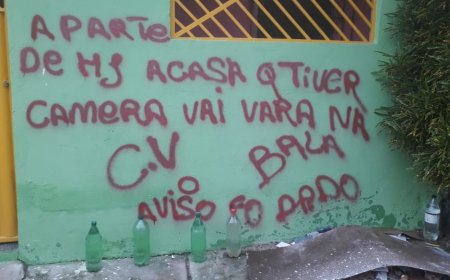 APARTE
DE HJ ACASA Q TIVER
CAMERA VAI VARA NA
C.V BALA
AVISO FO DADO